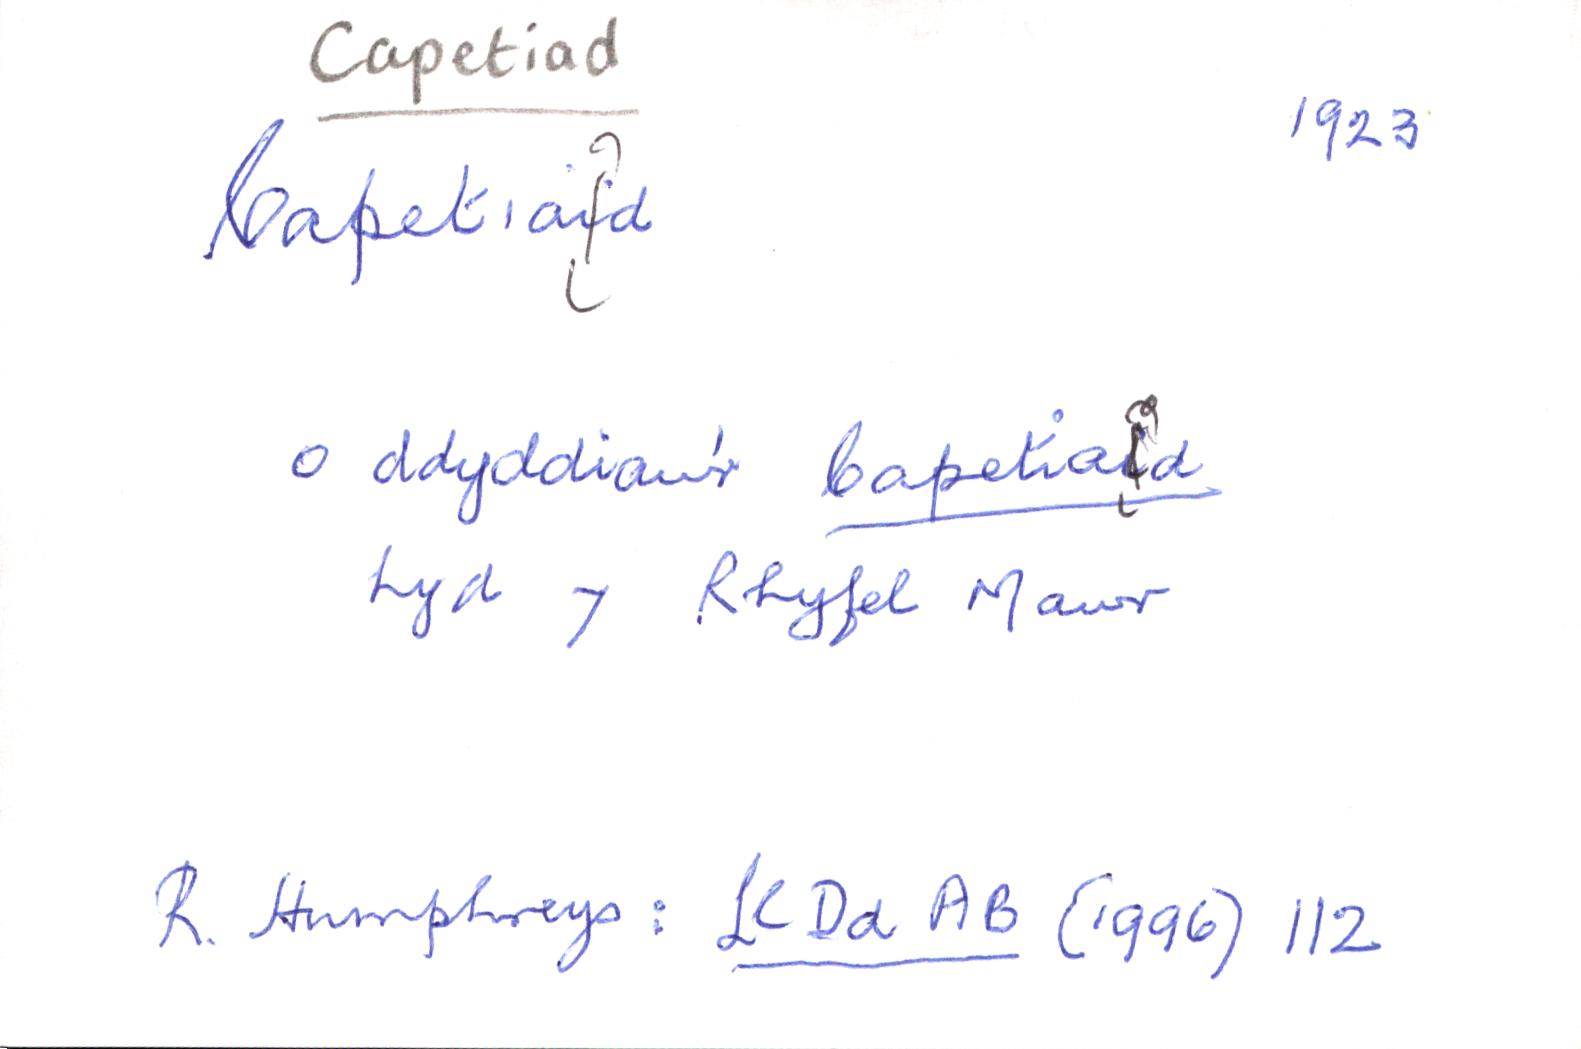 Capetiad
1923
Capetiaid
o ddyddiau'r Capetiaid
hyd y Rhyfel Mawr
R. Humphreys: Ll C Dd AB (1996) 112